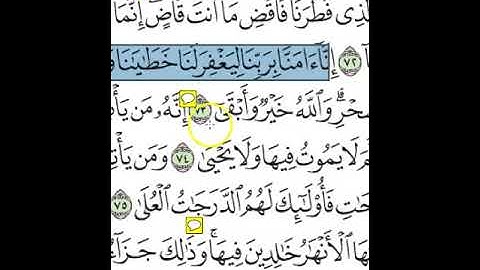 لَّذِى فَطَرَنَا فَٱقْضِ مَآ أَنتَ قَاضٍ إِنَّمَا
٧٢ إِنَّآ ءَامَنَّا بِرَبِّنَا لِيَغْفِرَ لَنَا خَطَٰيَٰنَا
سِّحْرِ وَٱللَّهُ خَيْرٌ وَأَبْقَىٰٓ ٧٣ إِنَّهُۥ مَن يَأْتِ
لَا يَمُوتُ فِيهَا وَلَا يَحْيَىٰ ٧٤ وَمَن يَأْتِ
فَأُو۟لَٰٓئِكَ لَهُمُ ٱلدَّرَجَٰتُ ٱلْعُلَىٰ ٧٥
ٱلْأَنْهَٰرُ خَٰلِدِينَ فِيهَا وَذَٰلِكَ جَزَآءُ